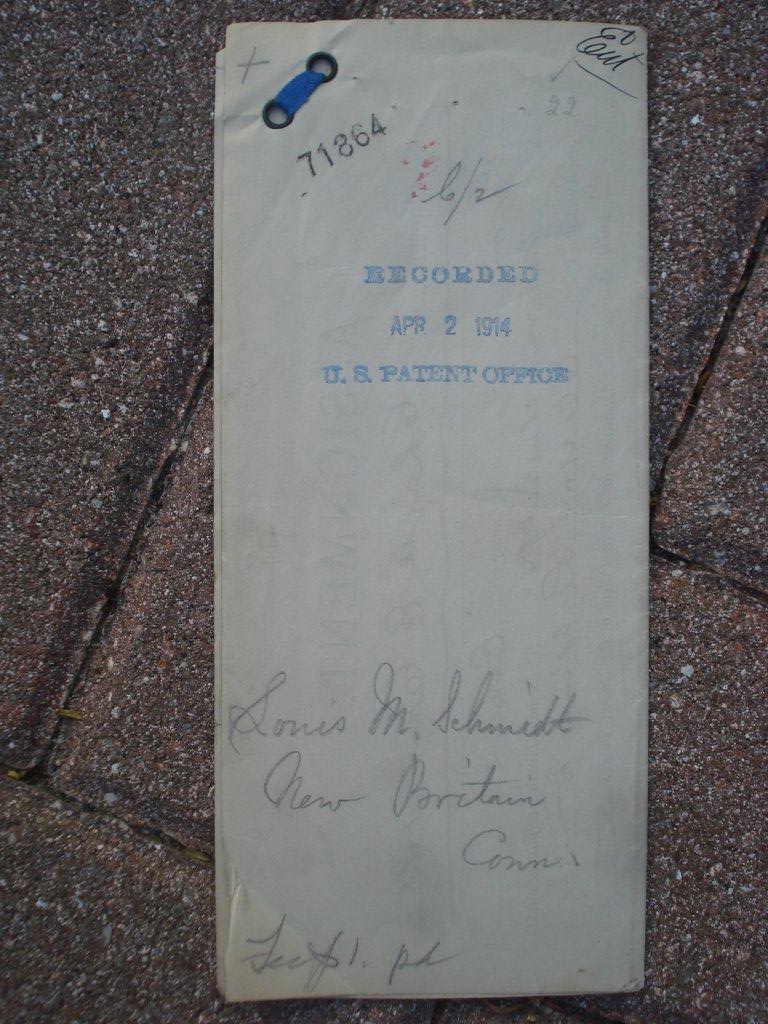 Ent
22
71864
6/2
RECORDED
APR 2 1914
U. S. PATENT OFFICE
Louis M. Schmidt
New Britain
Conn.
Fee $1. pd